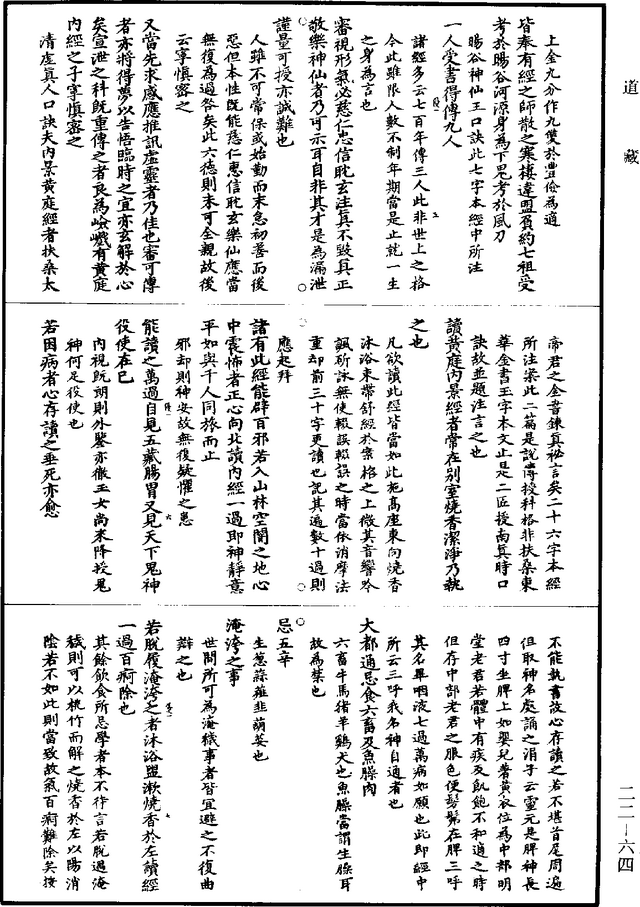 道藏
上金九分作九雙於豐儉為適
皆奉有經之師散之寒棲違盟負約七祖受
考於暘谷河源身為下鬼考於風刀
暘谷神仙王口訣此七字本經中所注
一人受書得傳九人
諸經多云七百年傳三人此非世上之格
今此雖限人數不制年期當是止就一生
之身為言也
審視形氣必慈仁忠信耽玄注真不毀真正
敬樂神仙者乃可示耳自非其才是為漏泄
謹量可授亦誠難也
人雖不可常保或始勤而末怠初善而後
惡但本性既能慈仁惠信耽玄樂仙應當
無復為過咎矣此六德則未可全親故後
云寧慎密之
又當先求感應推訊虛靈者乃佳也審可傳
者亦將得夢以告悟臨時之宜亦玄解於心
矣宣泄之科既重傳之者良為嶮巇有黃庭
內經之子寧慎密之
清虛真人口訣夫內景黃庭經者扶桑太
帝君之金書鍊真祕言矣二十六字本經
所注案此二篇是說傳授科格非扶桑東
華金書玉字本文止是二匠授南真時口
訣故並題注言之也
讀黃庭內景經者常在別室燒香潔淨乃執
之也
凡欲讀此經皆當如此施高座東向燒香
沐浴束帶舒經於案格之上微其音響吟
諷研詠無使輟誤輟誤之時當依消摩法
重却前三十字更讀也訖其遍數十過則
應起拜
諸有此經能辟百邪若入山林空闇之地心
中震怖者正心向北讀內經一過即神靜意
平如與千人同旅而止
邪却則神安故無復疑懼之患
能讀之萬過自見五藏腸胃又見天下鬼神
役使在已
內視既朗則外鑒亦徹玉女尚來降授鬼
神何足役使也
若困病者心存讀之垂死亦愈
不能執書故心存讀之若不堪首尾周遍
但取神名處誦之涓子云靈元是脾神長
四寸坐脾上如嬰兒著黃衣位為中部明
堂老君若體中有疾及飢飽不和適之時
但存中部老君之服色便髣髴在脾三呼
其名畢咽液七過萬病如願也此即經中
所云三呼我名神自通者也
大都通忌食六畜及魚臊肉
六畜牛馬猪羊鷄犬也魚臊當謂生臊耳
故為禁也
忌五辛
生葱蒜薤韭葫荽也
淹洿之事
世間所可為淹穢事者皆宜避之不復曲
辯之也
若脫履淹洿之者沐浴盥漱燒香於左讀經
一過百痾除也
其餘飲食所忌學者本不待言若脫過淹
穢則可以桃竹而解之燒香於左以陽消
陰若不如此則當致故氣百痾難除矣按
二二—六四